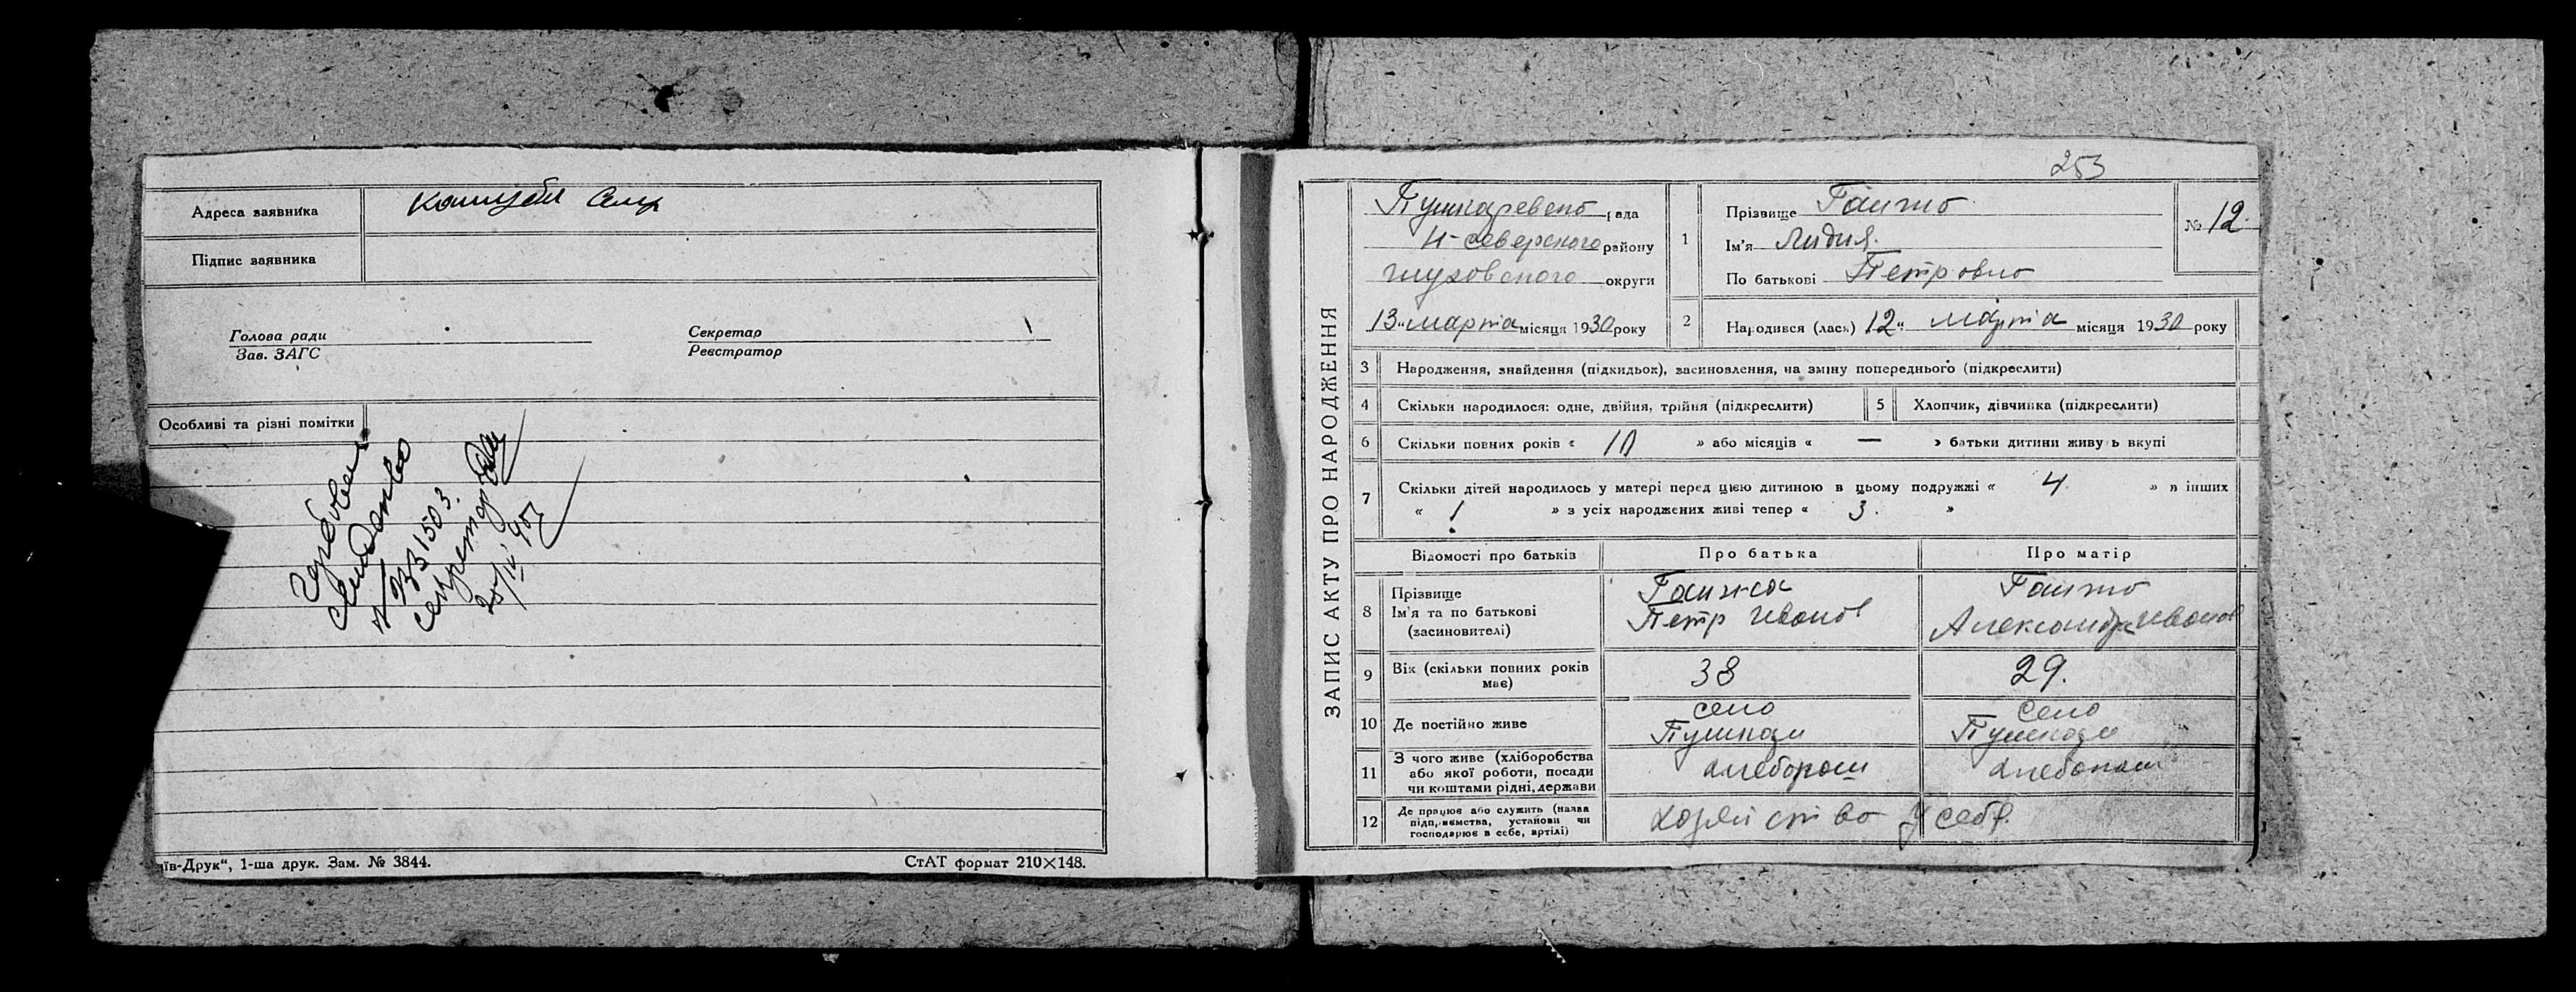 Адреса заявника
Підпис заявника
Голова ради
Зав. ЗАГС
Секретар
Реєстратор
Особливі та різні помітки
№
331503.
їв-Друк“, 1-ша друк. Зам. № 3844.
СтАТ формат 210×148.
253
ЗАПИС АКТУ ПРО НАРОДЖЕННЯ
рада
Н-северского району
глуховского округи
13 „ марта місяця 1930 року
1
Прізвище
Ім'я Лидия
По батькові Петровно
№ 12.
2 Народився (лась) 12 „ марта місяця 1930 року
3 Народження, знайдення (підкидьок), засиновлення, на зміну попереднього (підкреслити)
4 Скільки народилося: одне, двійня, трійня (підкреслити)
5 Хлопчик, дівчинка (підкреслити)
6 Скільки повних років « 10 » або місяців « — » батьки дитини живуть вкупі
7 Скільки дітей народилось у матері перед цією дитиною в цьому подружжі « 4 » в інших
« 1 » з усіх народжених живі тепер « 3. »
Відомості про батьків Про батька Про матір
8 Прізвище
Ім'я та по батькові
(засновителі)
Петр Иванов
Александра Иванов
9 Вік (скільки повних років
має)
38
29.
10 Де постійно живе
село
Пушкари
село
Пушкари
11 З чого живе (хліборобства
або якої роботи, посади
чи коштами рідні, держави
хлебопаш
хлебопаш
12 Де працює або служить (назва
підприємства, установи чи
господарює в себе, артілі)
хозяйство у себя.